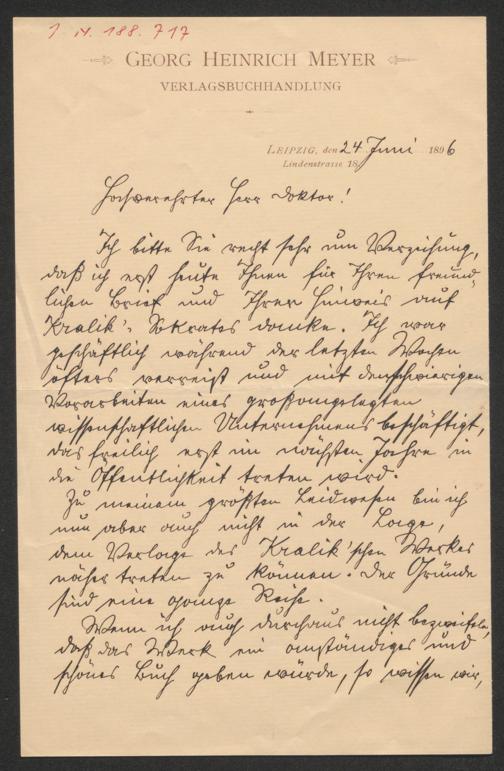 J. N. 188.717
GEORG HEINRICH MEYER
VERLAGSBUCHHANDLUNG
LEIPZIG, den 24 Juni 1896
Lindenstrasse 18
Hochverehrter Herr Doktor!
Ich bitte Sie recht sehr um Verzeihung,
daß ich erst heute Ihnen für Ihren freund-
lichen Brief und Ihren Hinweis auf
Kralik's Sokrates danke. Ich war
geschäftlich während der letzten Wochen
öfters verreist und mit den schwierigen
Vorarbeiten eines großangelegten
wissenschaftlichen Unternehmens beschäftigt,
das freilich erst im nächsten Jahre in
die Öffentlichkeit treten wird.
Zu meinem größten Leidwesen bin ich
nun aber auch nicht in der Lage,
dem Verlage des Kralik'schen Werkes
näher treten zu können. Der Gründe
sind eine ganze Reihe.
Wenn ich auch durchaus nicht bezweifele,
daß das Werk ein anständiges und
schönes Buch geben würde, so wissen wir,